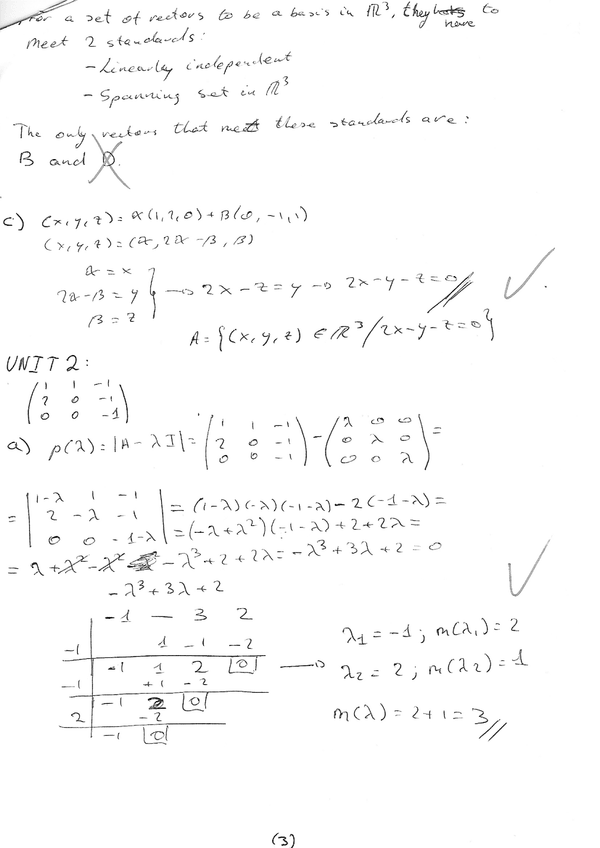 For a set of vectors to be a basis in ℝ³, they have to
meet 2 standards:
- Linearly independent
- Spanning set in ℝ³
The only vectors that meet these standards are:
B and D.
c) (x,y,z) = α(1,2,0) + β(0,-1,1)
(x,y,z) = (α, 2α - β, β)
α = x
2α - β = y } → 2x - z = y → 2x - y - z = 0 //
β = z
A = {(x,y,z) ∈ ℝ³ / 2x - y - z = 0}
UNIT 2:
(1 1 -1)
(2 0 -1)
(0 0 -1)
a) p(λ) = |A - λI| = (1 1 -1; 2 0 -1; 0 0 -1) - (λ 0 0; 0 λ 0; 0 0 λ) =
= |1-λ 1 -1; 2 -λ -1; 0 0 -1-λ| = (1-λ)(-λ)(-1-λ) - 2(-1-λ) =
= (-λ+λ²)(-1-λ) + 2 + 2λ =
= λ + λ² - λ² - λ³ + 2 + 2λ = -λ³ + 3λ + 2 = 0
-λ³ + 3λ + 2
-1 — 3 2
-1 | 1 -1 -2
-1 1 2 |0|
-1 | +1 -2
-1 2 |0|
2 | -2
-1 |0|
→ λ1 = -1 ; m(λ1) = 2
λ2 = 2 ; m(λ2) = 1
m(λ) = 2+1 = 3 //
(3)